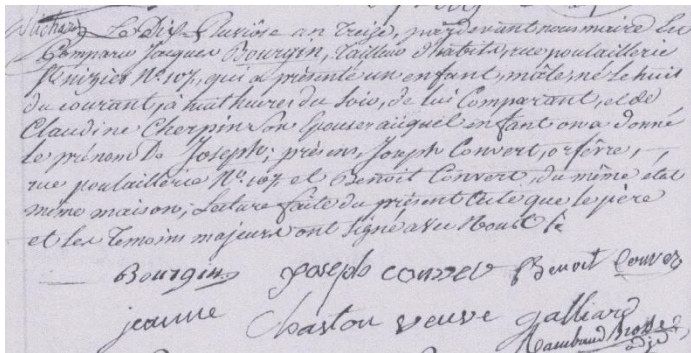 Le Dix Pluviôse an treize, pardevant nous maire Est
Comparu Jacques Bourgin, Tailleur d'habits, rue poulaillerie
St nizier No. 107, qui a présenté un enfant mâle, né le huit
du courant, à huit heures du soir, de lui Comparant, et de
Claudine Cherpin son Epouse; auquel enfant on a donné
le prénom De Joseph; présens, Joseph Convert, orfèvre,
rue poulaillerie No. 107 et Benoit Convert, du même état
même maison; Lecture faite du présent acte que le père
et les Témoins majeurs ont Signé avec Nous
Bourgin Joseph Convert Benoit Convert
jeanne Chaston veuve galliard
Rambaud Brosse
adjt